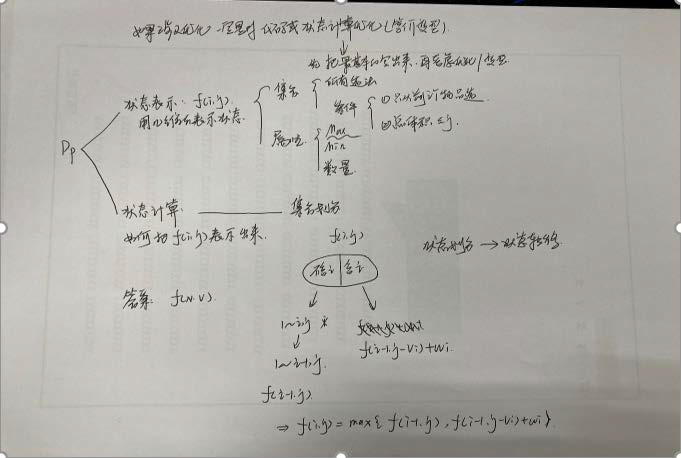 如果涉及优化一定是对代码或状态计算优化(等价变型).
先把最基本的写出来,再考虑优化/变型
Dp
状态表示: f(i,j)
用几维的表示状态.
集合
所有选法
条件
①只从前i个物品选
②总体积≤j.
属性
Max
Min
数量
状态计算
集合划分
如何把f(i,j)表示出来.
f(i,j)
状态划分 → 状态转移
不含i 含i
答案: f(N,V)
1~i,j
f(i-1,j-Vi)+Wi
1~i-1,j
f(i-1,j)
⇒ f(i,j)=max{f(i-1,j),f(i-1,j-Vi)+wi}